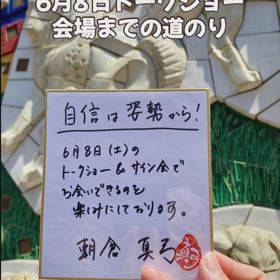 6月8日トークショー
会場までの道のり
自信は姿勢から!
6月8日(土)の
トークショー&サイン会で
お会いできるのを
楽しみにしております。
朝倉 真弓